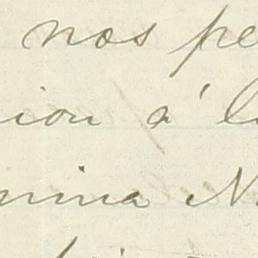 nos pe
ion à l
mina N.